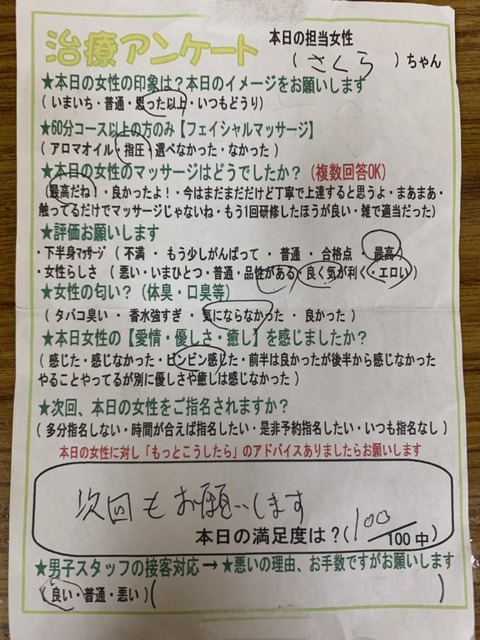 治療アンケート 本日の担当女性
(さくら)ちゃん
★本日の女性の印象は?本日のイメージをお願いします
(いまいち・普通・思った以上・いつもどうり)
★60分コース以上の方のみ【フェイシャルマッサージ】
(アロマオイル・指圧・選べなかった・なかった)
★本日の女性のマッサージはどうでしたか?(複数回答OK)
(最高だね!・良かったよ!・今はまだまだだけど丁寧で上達すると思うよ・まあまあ・
触ってるだけでマッサージじゃないね・もう1回研修したほうが良い・雑で適当だった)
★評価お願いします
・下半身マッサージ(不満・もう少しがんばって・普通・合格点・最高)
・女性らしさ(悪い・いまひとつ・普通・品性がある・良く気が利く・エロい)
★女性の匂い?(体臭・口臭等)
(タバコ臭い・香水強すぎ・気にならなかった・良かった)
★本日女性の【愛情・優しさ・癒し】を感じましたか?
(感じた・感じなかった・ビンビン感じた・前半は良かったが後半から感じなかった
やることやってるが別に優しさや癒しは感じなかった)
★次回、本日の女性をご指名されますか?
(多分指名しない・時間が合えば指名したい・是非予約指名したい・いつも指名なし)
本日の女性に対し「もっとこうしたら」のアドバイスありましたらお願いします
次回もお願いします
本日の満足度は?(100/100中)
★男子スタッフの接客対応→★悪いの理由、お手数ですがお願いします
(良い・普通・悪い)( )